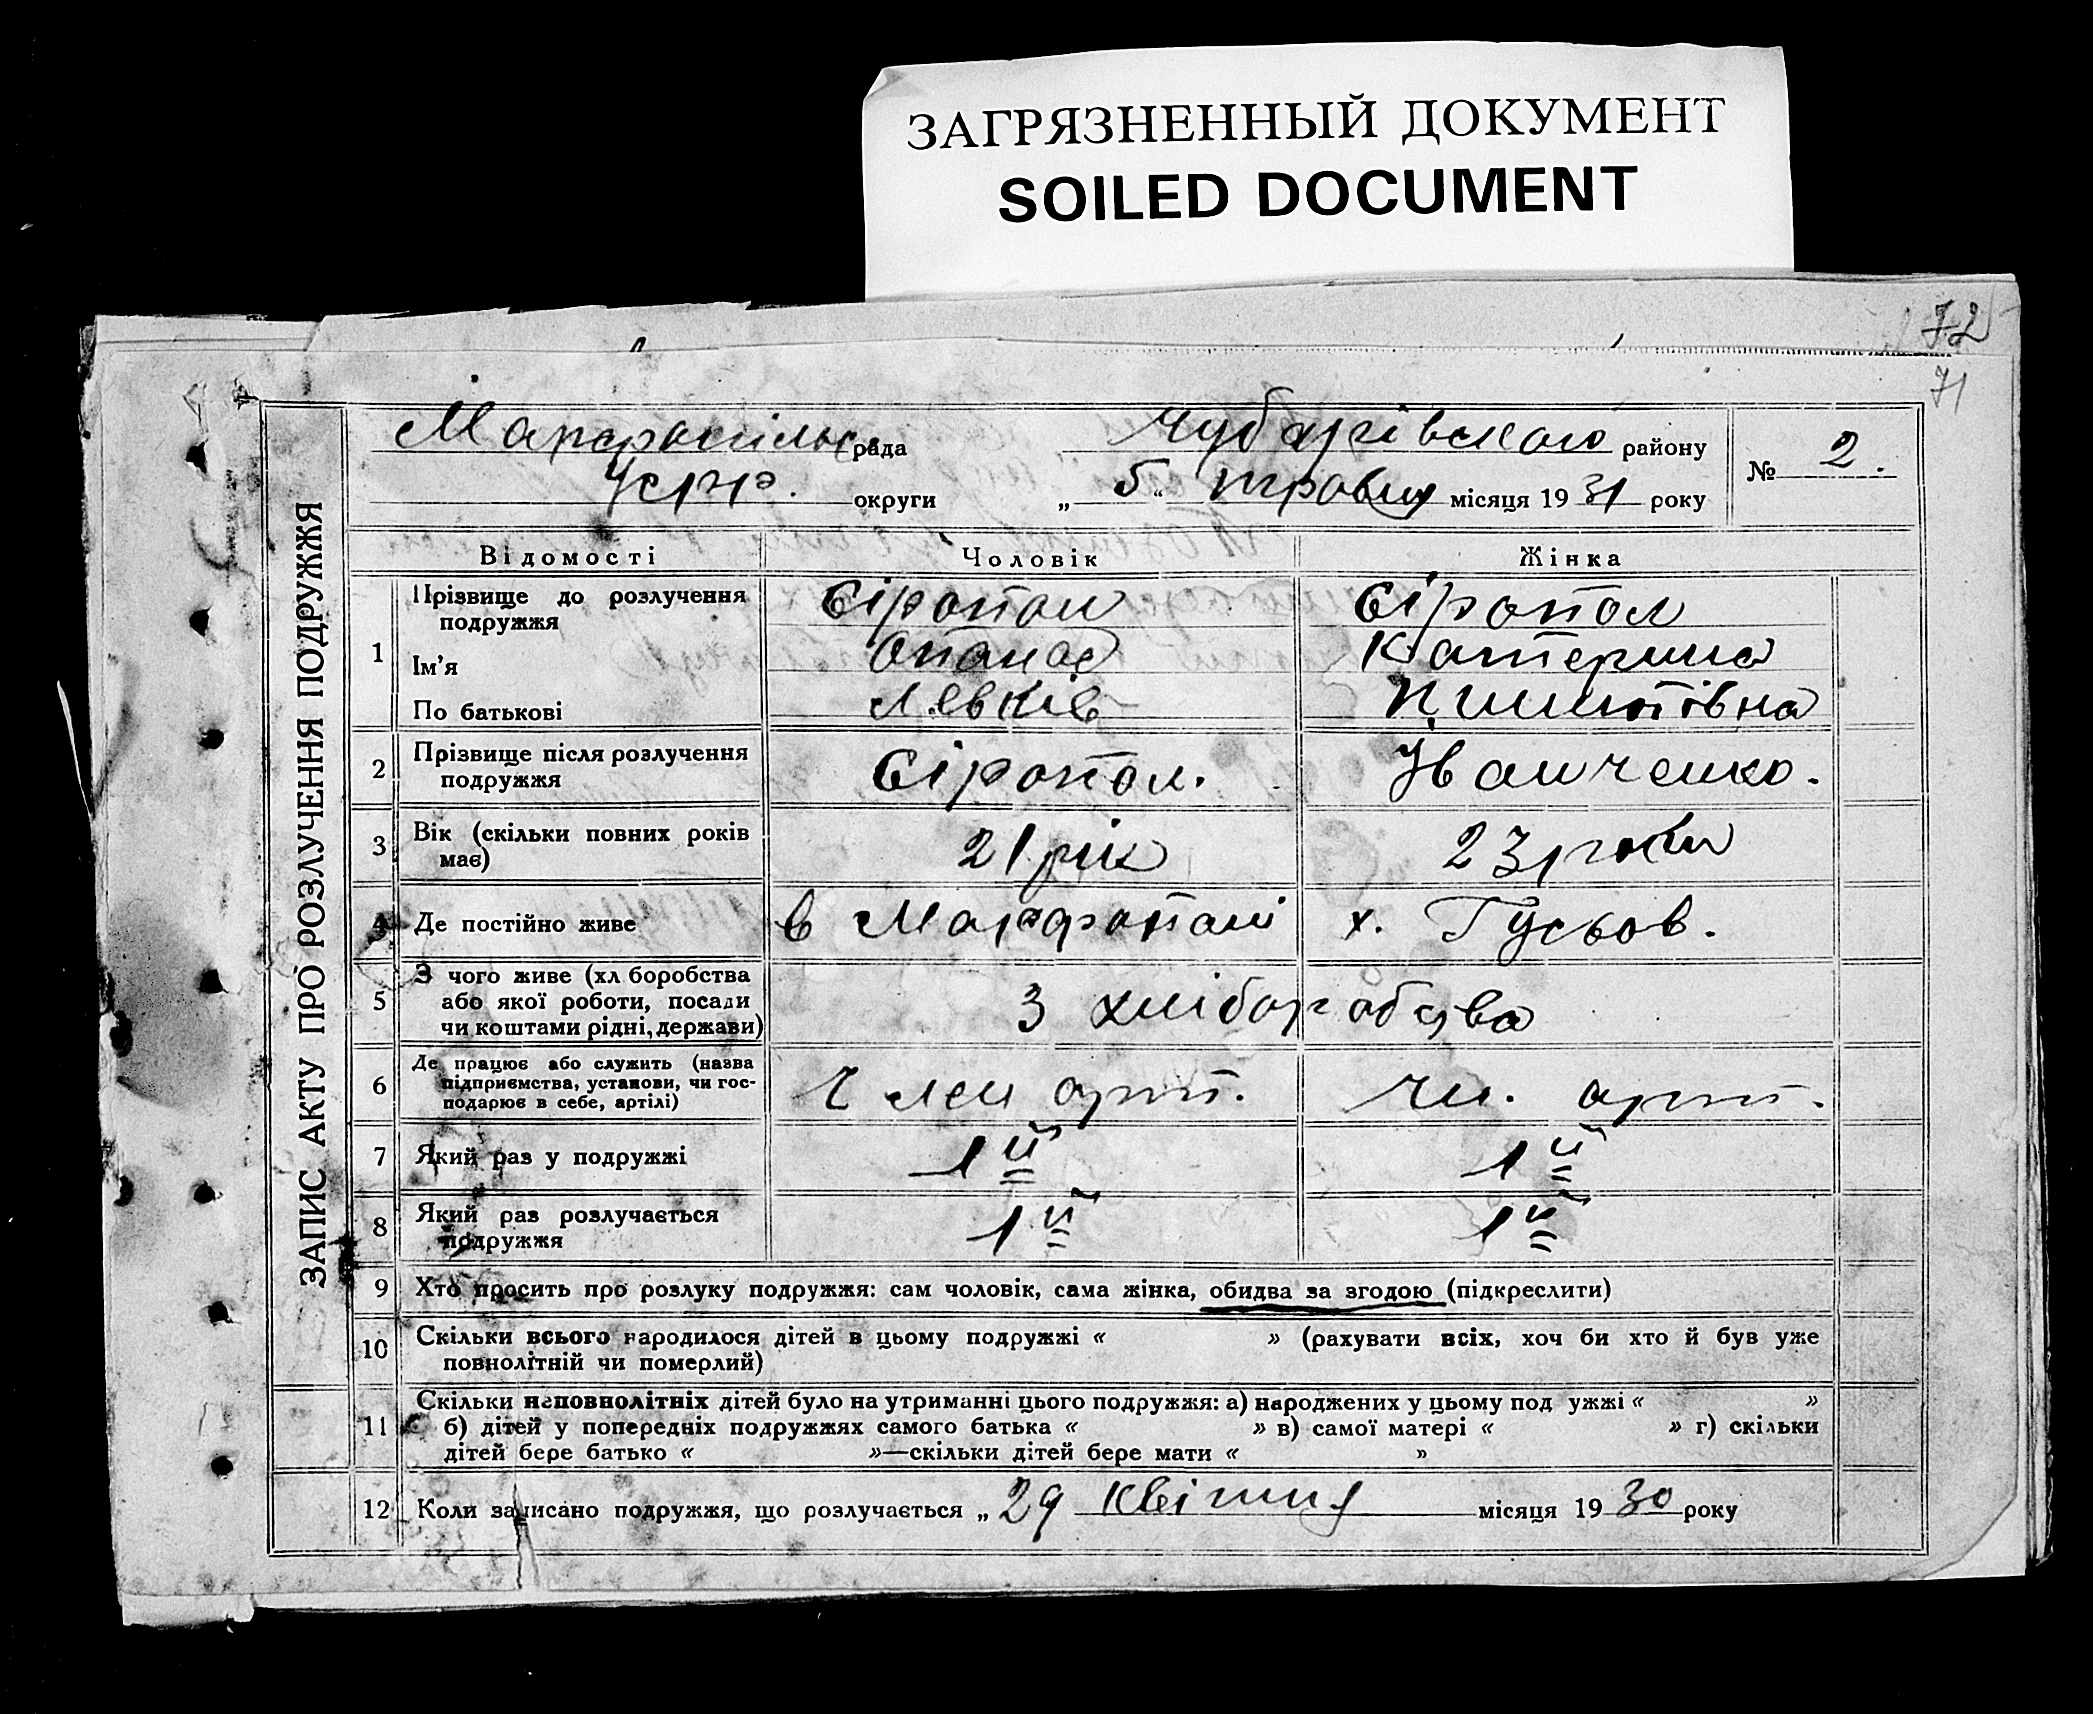 ЗАГРЯЗНЕННЫЙ ДОКУМЕНТ
SOILED DOCUMENT
72
71
ЗАПИС АКТУ ПРО РОЗЛУЧЕННЯ ПОДРУЖЖЯ
Марфопільс. рада Чубарівского району № 2.
УСРР. округи „ 5 “ травня місяця 19 31 року
Відомості Чоловік Жінка
1 Прізвище до розлучення подружжя Сіропол Сіропол
Ім'я Опанас Катерина
По батькові Левків Пилипівна
2 Прізвище після розлучення подружжя Сіропол. Іванченко.
3 Вік (скільки повних років має) 21 рік 23 роки
4 Де постійно живе в Марфополі х. Гусьов.
5 З чого живе (хліборобства
або якої роботи, посади
чи коштами рідні, держави) З хліборобства
6 Де працює або служить (назва
підприємства, установи, чи гос-
подарює в себе, артілі) Член арт. Чл. арт.
7 Який раз у подружжі 1й 1й
8 Який раз розлучається подружжя 1й 1й
9 Хто просить про розлуку подружжя: сам чоловік, сама жінка, обидва за згодою (підкреслити)
10 Скільки всього народилося дітей в цьому подружжі « » (рахувати всіх, хоч би хто й був уже
повнолітній чи померлий)
11 Скільки неповнолітніх дітей було на утриманні цього подружжя: а) народжених у цьому под ужжі « »
б) дітей у попередніх подружжях самого батька « » в) самої матері « » г) скільки
дітей бере батько « »—скільки дітей бере мати « »
12 Коли записано подружжя, що розлучається „ 29 квітня місяця 19 30 року